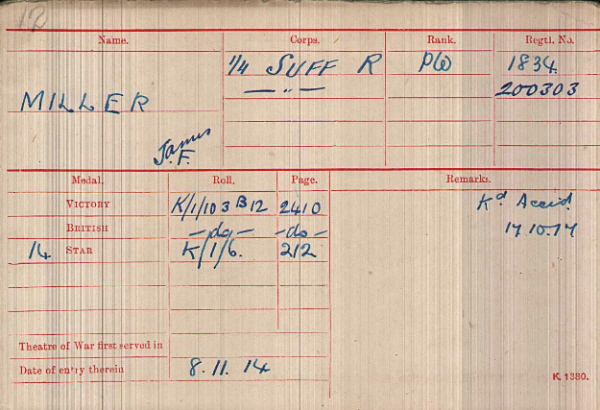 12
Name. Corps. Rank. Regtl. No.
1/4 SUFF R Pte 1834
— " — 200303
MILLER
James
F.
Medal. Roll. Page. Remarks.
VICTORY K/1/103 B12 2410 Kd Accid.
BRITISH —do— —do— 17.10.17
14 STAR K/1/6. 212
Theatre of War first served in
Date of entry therein 8.11.14
K 1380.